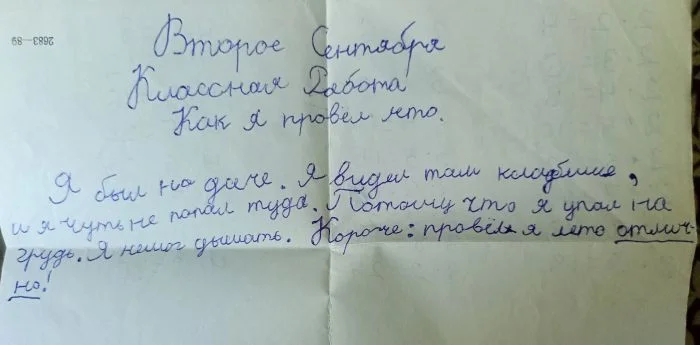 2683-89
Второе Сентября
Классная Работа
Как я провёл лето.
Я был на даче. Я видел там кладбише,
и я чуть не попал туда. Потому что я упал на
грудь. Я немог дышать. Короче: провёл я лето отлич-
но!